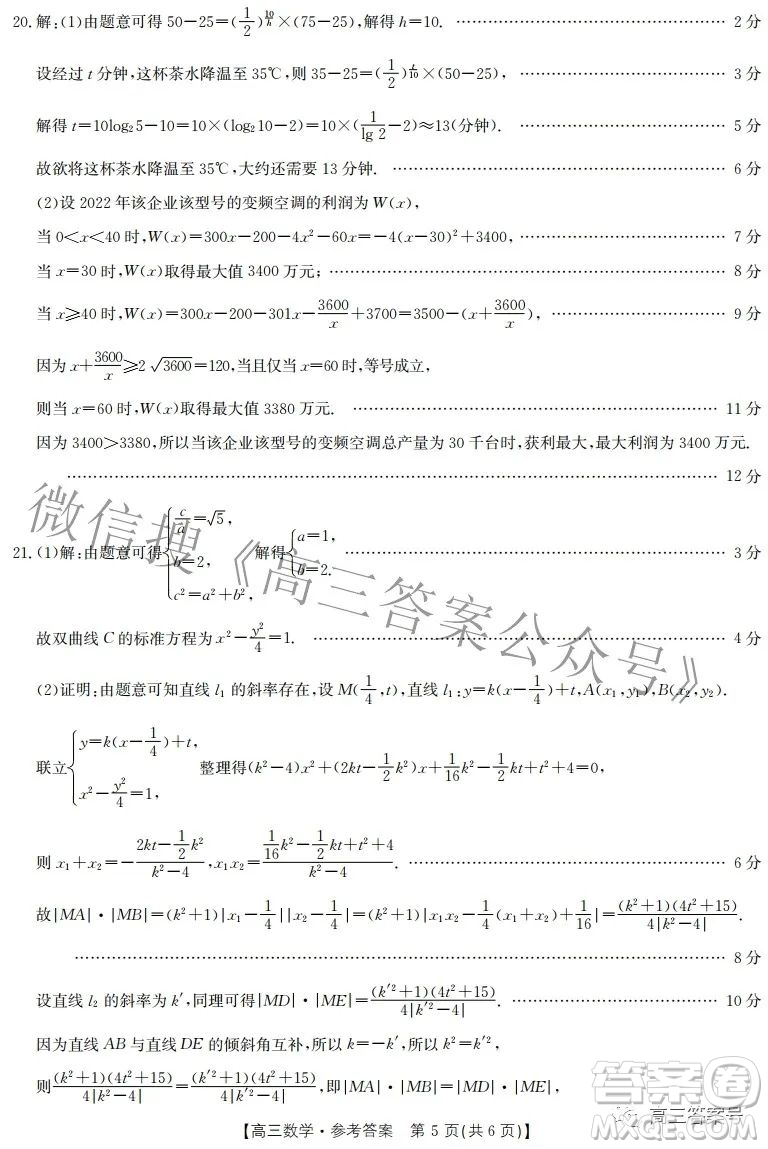 20. 解:(1)由题意可得 50-25=(1/2)^(10/h)×(75-25),解得 h=10. 2 分
设经过 t 分钟,这杯茶水降温至 35℃,则 35-25=(1/2)^(t/10)×(50-25), 3 分
解得 t=10log₂5-10=10×(log₂10-2)=10×(1/lg 2-2)≈13(分钟). 5 分
故欲将这杯茶水降温至 35℃,大约还需要 13 分钟. 6 分
(2)设 2022 年该企业该型号的变频空调的利润为 W(x),
当 0<x<40 时,W(x)=300x-200-4x²-60x=-4(x-30)²+3400, 7 分
当 x=30 时,W(x)取得最大值 3400 万元; 8 分
当 x⩾40 时,W(x)=300x-200-301x-3600/x+3700=3500-(x+3600/x), 9 分
因为 x+3600/x⩾2√3600=120,当且仅当 x=60 时,等号成立,
则当 x=60 时,W(x)取得最大值 3380 万元. 11 分
因为 3400>3380,所以当该企业该型号的变频空调总产量为 30 千台时,获利最大,最大利润为 3400 万元.
12 分
21. (1)解:由题意可得{c/a=√5, b=2, c²=a²+b², 解得{a=1, b=2. 3 分
故双曲线 C 的标准方程为 x²-y²/4=1. 4 分
(2)证明:由题意可知直线 l₁ 的斜率存在,设 M(1/4,t),直线 l₁:y=k(x-1/4)+t,A(x₁,y₁),B(x₂,y₂).
联立{y=k(x-1/4)+t, x²-y²/4=1, 整理得(k²-4)x²+(2kt-1/2k²)x+1/16k²-1/2kt+t²+4=0,
则 x₁+x₂=-(2kt-1/2k²)/(k²-4),x₁x₂=(1/16k²-1/2kt+t²+4)/(k²-4). 6 分
故|MA|·|MB|=(k²+1)|x₁-1/4||x₂-1/4|=(k²+1)|x₁x₂-1/4(x₁+x₂)+1/16|=(k²+1)(4t²+15)/(4|k²-4|).
8 分
设直线 l₂ 的斜率为 k′,同理可得|MD|·|ME|=(k′²+1)(4t²+15)/(4|k′²-4|). 10 分
因为直线 AB 与直线 DE 的倾斜角互补,所以 k=-k′,所以 k²=k′²,
则(k²+1)(4t²+15)/(4|k²-4|)=(k′²+1)(4t²+15)/(4|k′²-4|),即|MA|·|MB|=|MD|·|ME|,
【高三数学·参考答案 第 5 页(共 6 页)】
微信搜《高三答案公众号》
答案圈
MXQE.COM
高三答案号